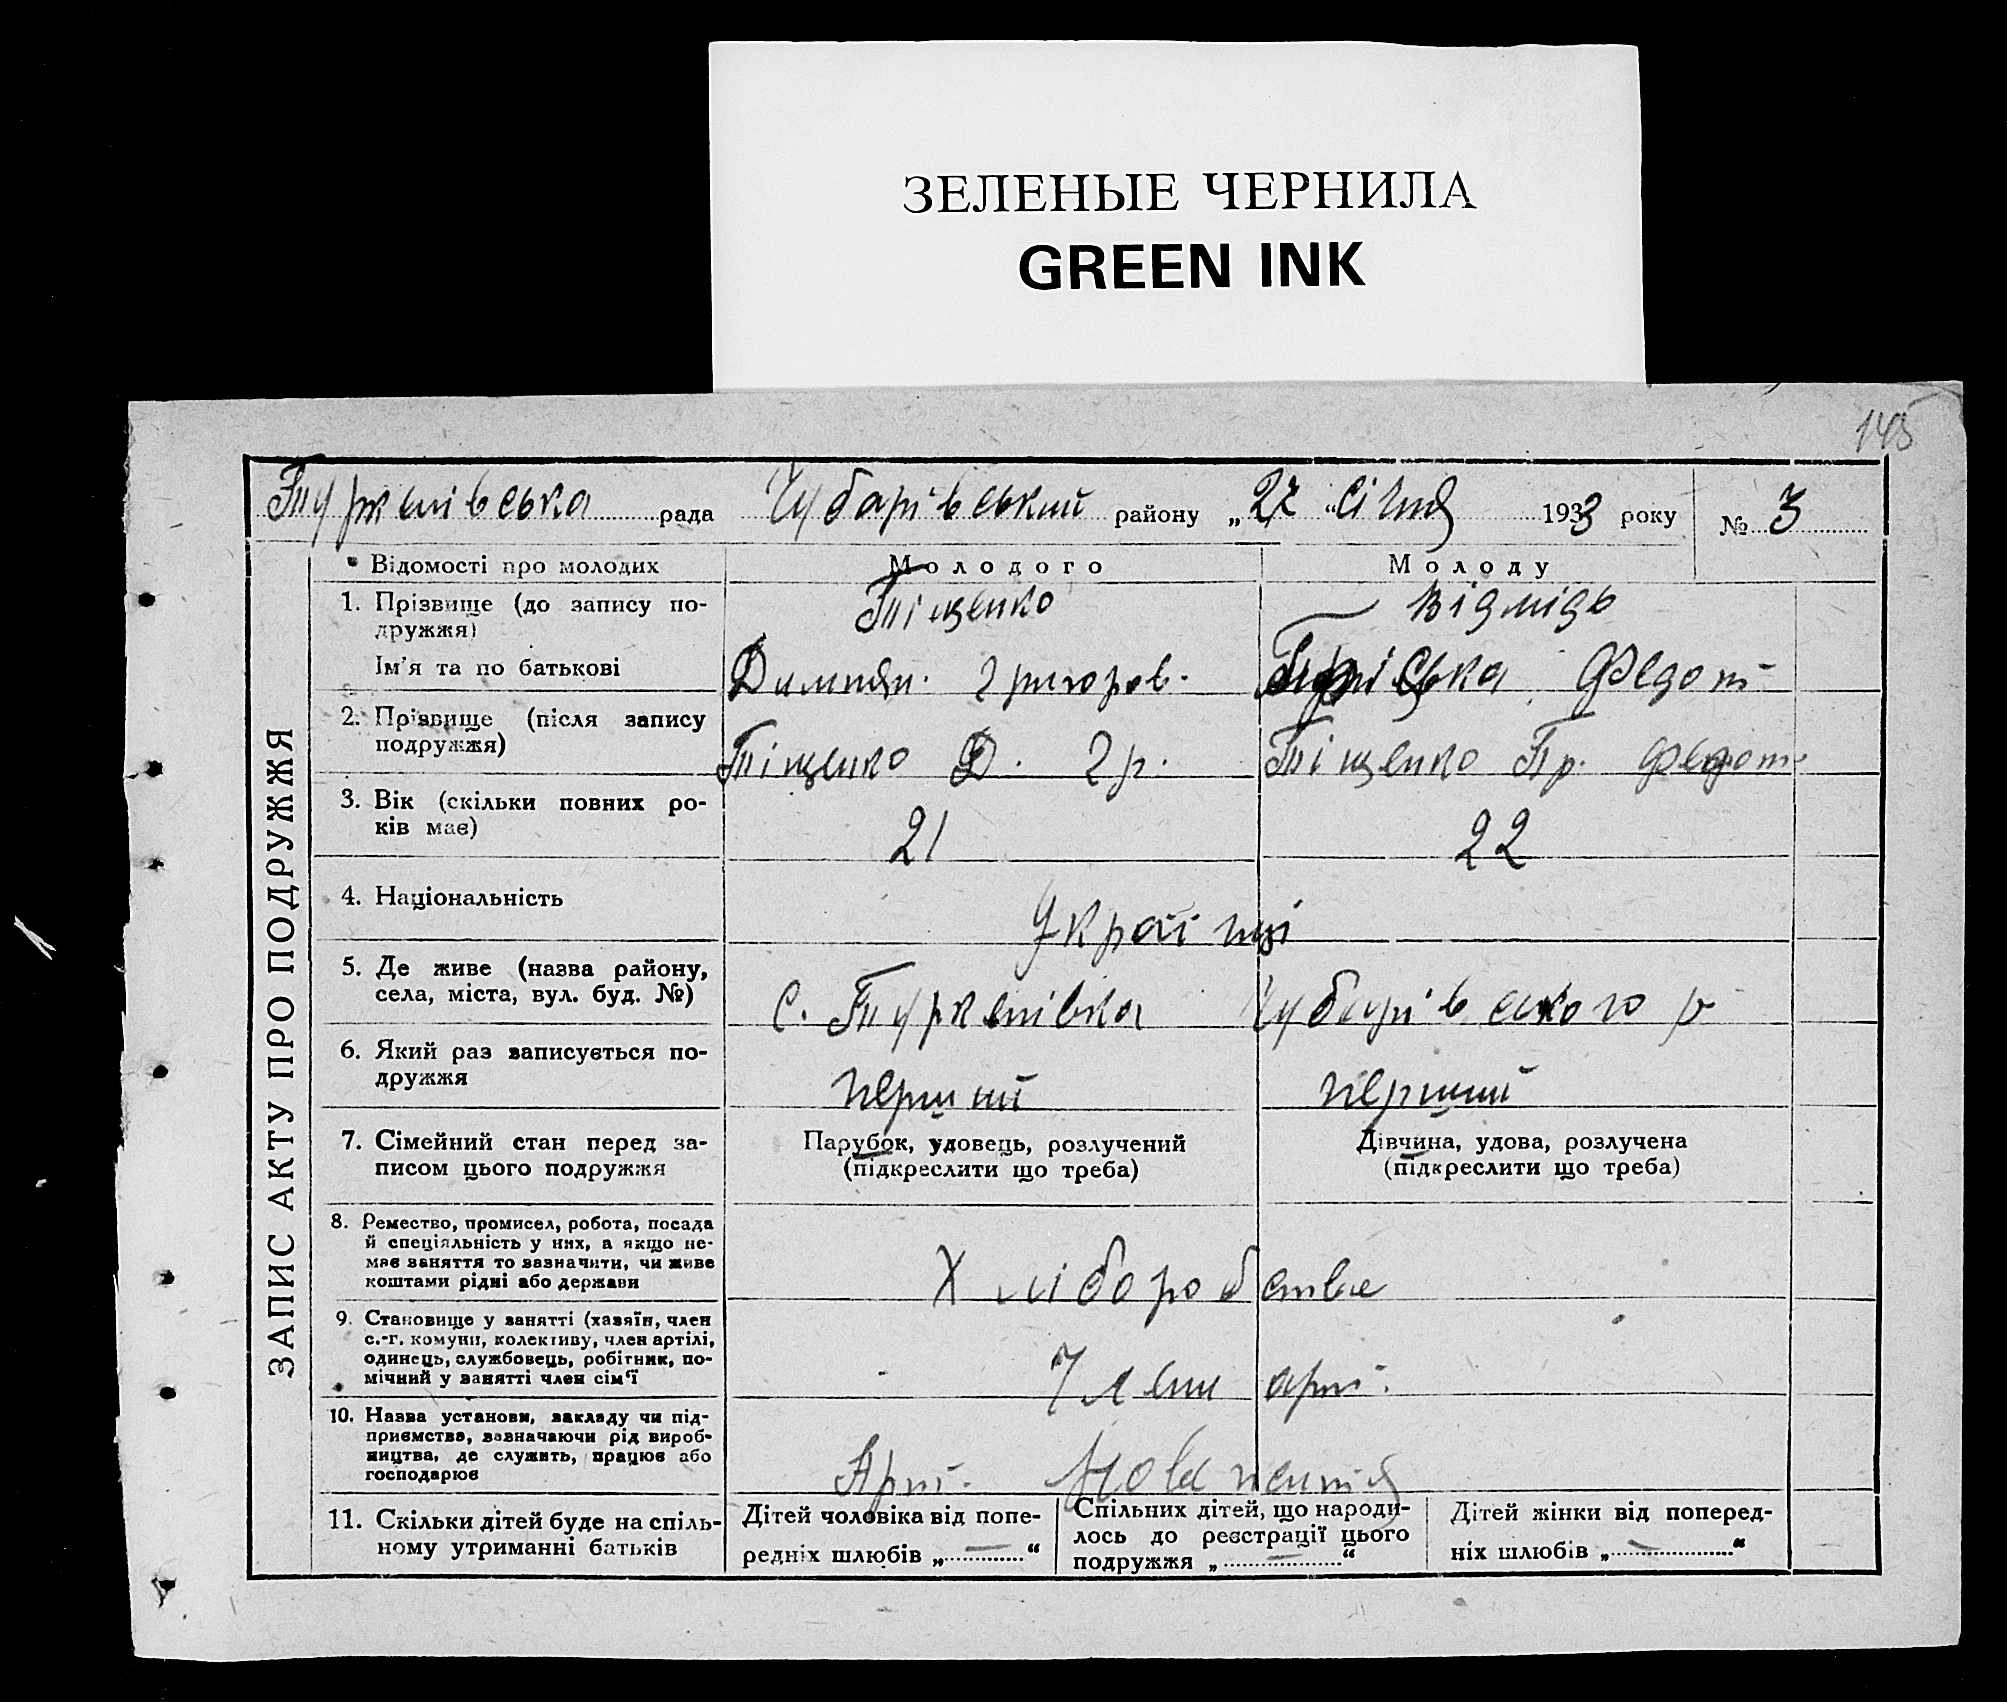 ЗЕЛЕНЫЕ ЧЕРНИЛА
GREEN INK
145
Туркенівська рада Чубарівський району „27 “ січня 1933 року № 3
ЗАПИС АКТУ ПРО ПОДРУЖЖЯ
Відомості про молодих Молодого Молоду
1. Прізвище (до запису по-
дружжя)
Тіщенко Відмідь
Ім'я та по батькові
Димиян. Григоров. Федот
2. Прізвище (після запису
подружжя)
Тіщенко Д. Гр. Тіщенко Пр. Федот.
3. Вік (скільки повних ро-
ків має)
21 22
4. Національність
Українці
5. Де живе (назва району,
села, міста, вул. буд. №)
с. Туркенівка Чубарівського р
6. Який раз записується по-
дружжя
перший перший
7. Сімейний стан перед за-
писом цього подружжя
Парубок, удовець, розлучений
(підкреслити що треба)
Дівчина, удова, розлучена
(підкреслити що треба)
8. Ремество, промисел, робота, посада
й спеціяльність у них, а якщо не-
має заняття то зазначити, чи живе
коштами рідні або держави
Хліборобство
9. Становище у занятті (хазяїн, член
с.-г. комуни, колективу, член артілі,
одинець, службовець, робітник, по-
мічний у занятті член сім'ї
Член арт.
10. Назва установи, закладу чи під-
приємства, зазначаючи рід вироб-
ництва, де служить, працює або
господарює
Арт. Нова
11. Скільки дітей буде на спіль-
ному утриманні батьків
Дітей чоловіка від попе-
редніх шлюбів „ — “
Спільних дітей, що народи-
лось до реєстрації цього
подружжя „ — “
Дітей жінки від поперед-
ніх шлюбів „ — “